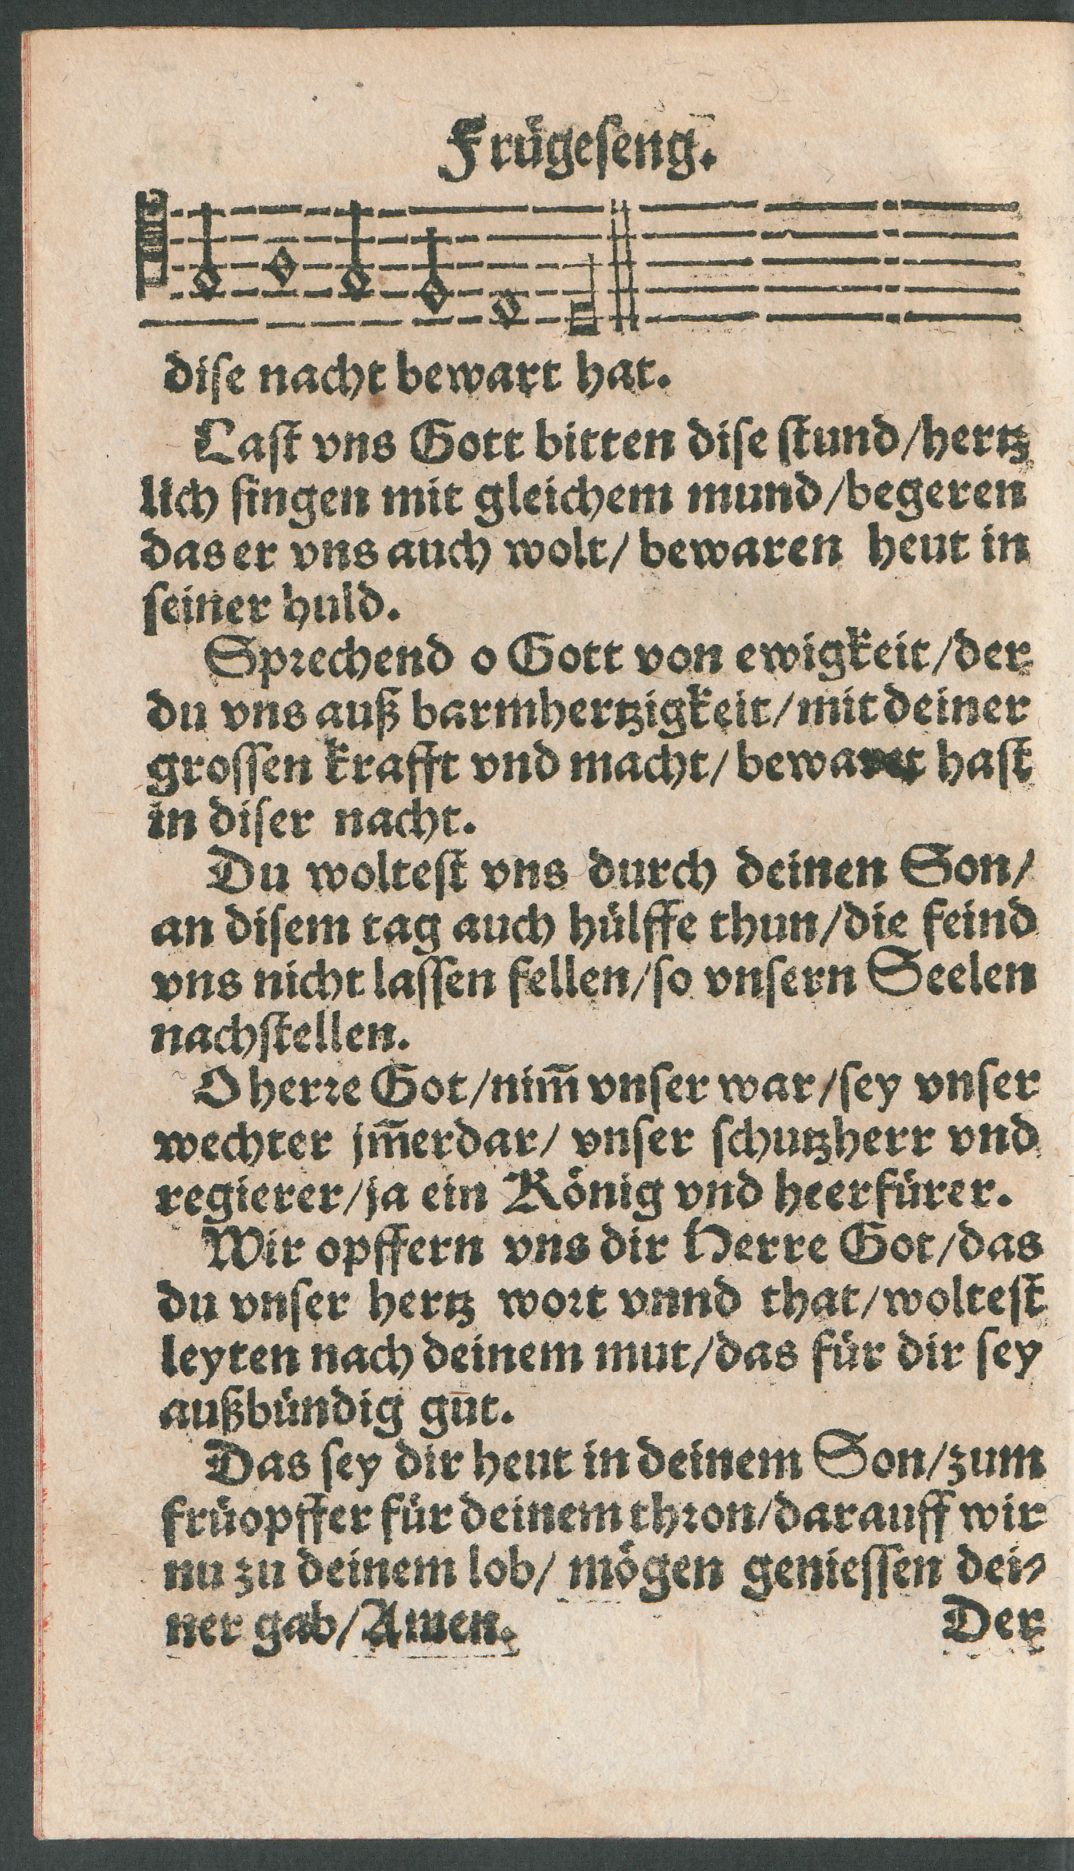 Frügeseng.
dise nacht bewart hat.
Last vns Gott bitten dise stund/hertz
lich singen mit gleichem mund/begeren
das er vns auch wolt/ bewaren heut in
seiner huld.
Sprechend o Gott von ewigkeit/der
du vns auß barmhertzigkeit/mit deiner
grossen krafft vnd macht/ bewaret hast
in diser nacht.
Du woltest vns durch deinen Son/
an disem tag auch hülffe thun/die feind
vns nicht lassen fellen/so vnsern Seelen
nachstellen.
O herre Got/nim̄ vnser war/sey vnser
wechter jm̄erdar/ vnser schutzherr vnd
regierer/ja ein König vnd heerfürer.
Wir opffern vns dir Herre Got/das
du vnser hertz wort vnnd that/woltest
leyten nach deinem mut/das für dir sey
außbündig gut.
Das sey dir heut in deinem Son/zum
früopffer für deinem thron/darauff wir
nu zu deinem lob/ mögen geniessen dei-
ner gab/Amen. Der